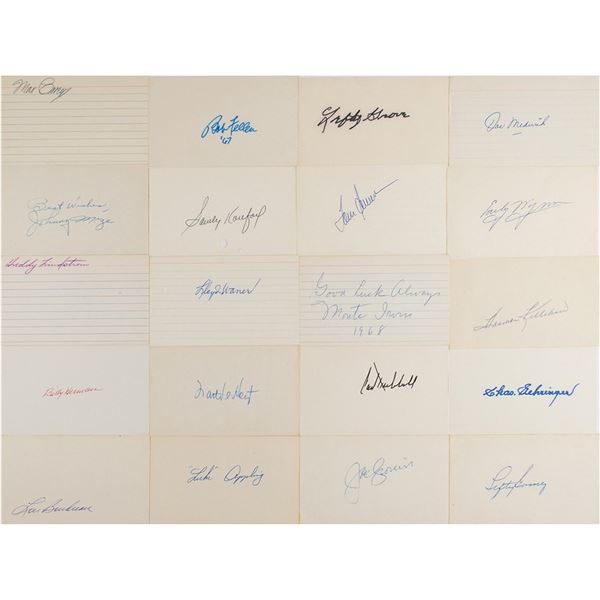 Max Carey
Bob Feller
'67
Lefty Grove
Joe Medwick
Best Wishes
Johnny Mize
Sandy Koufax
Tom Seaver
Early Wynn
Freddy Lindstrom
Lloyd Waner
Good Luck Always
Monte Irvin
1968
Harmon Killebrew
Billy Herman
Waite Hoyt
Carl Hubbell
Chas. Gehringer
Lou Boudreau
"Luke" Appling
Joe Cronin
Lefty Gomez